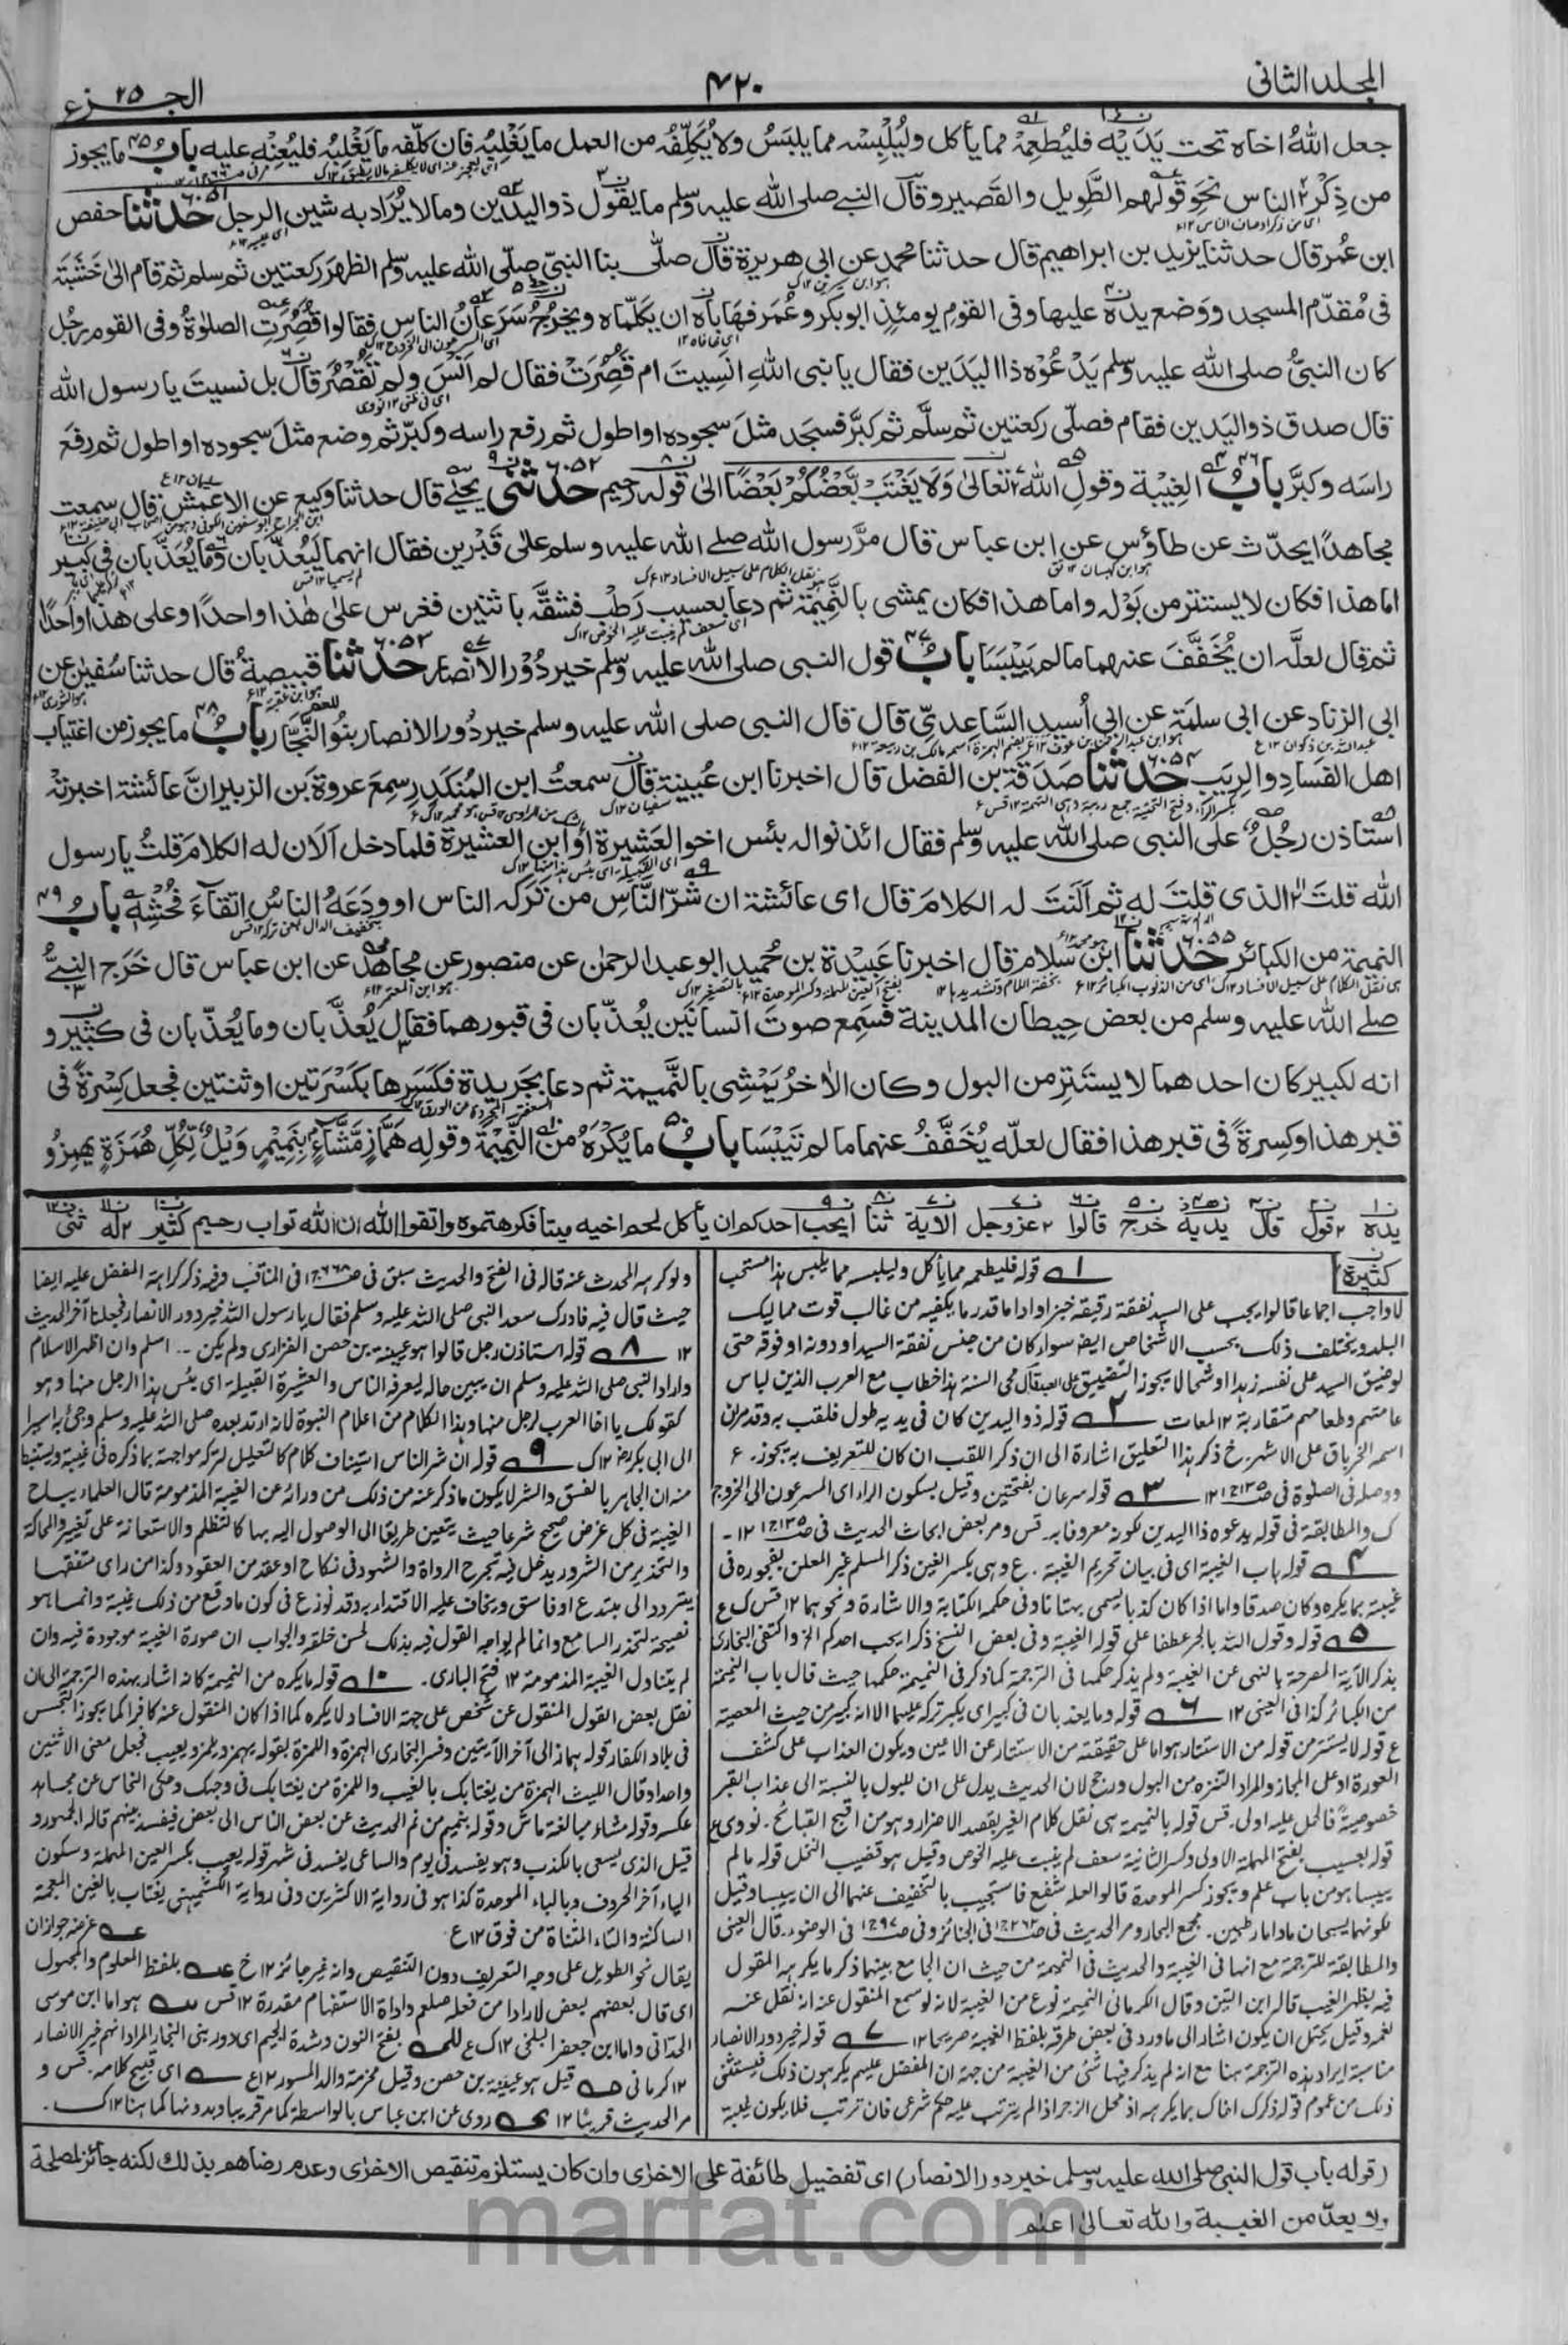 المجلد الثانی
۴۲۰
الجزء ۲۵
جعل اللهُ اخاه تحت يَدَيْه فليُطعِمْهُ مما يأكل وليُلْبِسْه مما يلبَسُ ولا يُكَلِّفُه من العمل ما يَغْلِبُه فان كلّفه ما يَغْلِبُه فليُعِنْهِ عليه بابُ ۴۵ ما يجوز
من ذِكْرِ الناس نحوَ قولهم الطَّوِيل والقَصير وقال النبے صلی الله عليه وسلم ما يقول ذو اليدين وما لا يُراد به شين الرجل ۶۰۵۱ حدثنا حفص
ابن عُمر قال حدثنا يزيد بن ابراهيم قال حدثنا محمد عن ابی هريرة قال صلّٰى بنا النبیُّ صلّی الله عليه وسلم الظهرَ ركعتين ثم سلم ثم قام الیٰ خَشَبَة
فی مُقدَّم المسجد ووَضع يده عليها وفی القوم يومئذٍ ابو بكر وعُمَر فهَابَاه ان يكلّماه ويخرُجُ سَرَعَانُ الناس فقالوا قصُرَتِ الصلوٰةُ وفی القوم رجُل
كان النبیُّ صلی الله عليه وسلم يَدْعُوْه ذا اليَدَين فقال يا نبی اللهِ انَسِيتَ ام قَصُرَتْ فقال لم اَنْسَ ولم تَقْصُرْ قال بل نسيتَ يا رسول الله
قال صدق ذو اليَدين فقام فصلّی ركعتين ثم سلَّم ثم كبَّر فسجد مثلَ سجوده او اطول ثم رفع راسه وكبّر ثم وضع مثلَ سجوده او اطول ثم رفعَ
راسَه وكبَّرَ بابُ ۴۶ الغِيْبة وقولِ الله تعَالیٰ وَلَا يَغْتَبْ بَّعْضُكُمْ بَعْضًا الیٰ قوله رحيم ۶۰۵۲ حدثنی يحيٰے قال حدثنا وكيع عن الاعمش قال سمعت
مجاهدًا يحدّث عن طاؤس عن ابن عباس قال مرَّ رسول الله صلے الله عليه وسلم علیٰ قَبْرين فقال انهما ليُعذّبان وما يُعَذَّبان فی كبير
اما هذا فكان لا يستتر من بَوْله واما هذا فكان يمشی بالنَّمِيْمَة ثم دعا بعسيب رَطْب فشقَّه باثنين فغرس علیٰ هٰذا واحدًا وعلی هذا واحدًا
ثم قال لعلَّه ان يُخَفَّفَ عنهما ما لم يَيْبَسَا بابُ ۴۷ قول النبی صلی الله عليه وسلم خير دُوْر الانصار ۶۰۵۳ حدثنا قبيصةُ قال حدثنا سُفيٰن عن
ابی الزناد عن ابی سلمَة عن ابی اُسيد السَّاعدیّ قال قال النبی صلی الله عليه وسلم خير دُور الانصار بنُو النَّجَّار بابُ ۴۸ ما يجوز من اغتياب
اهل الفَسَاد والرِيَب ۶۰۵۴ حدثنا صَدَقَة بن الفضل قال اخبرنا ابن عُيينة قال سمعتُ ابن المُنكدِر سمِعَ عروةَ بن الزبير انَّ عائشة اخبرته
استاذن رجُلٌ علی النبی صلی الله عليه وسلم فقال ائذنوا له بئس اخو العَشِيرة او ابن العشيرة فلما دخل اَلَان له الكلامَ قلتُ يا رسول
الله قلتَ الذی قلتَ له ثم اَلَنتَ له الكلامَ قال ای عائشة ان شرَّ النَّاسِ من تَرَكَه الناس او ودَعَهُ الناسُ اتقاءَ فُحْشِه بابُ ۴۹
النميمة من الكبائر ۶۰۵۵ حدثنا ابن سلام قال اخبرنا عَبِيْدة بن حُميد ابو عبد الرحمٰن عن منصور عن مجاهد عن ابن عباس قال خَرَج النبیُّ
صلے الله عليه وسلم من بعض حِيطان المدينة فسَمِع صوتَ انسانَيْن يُعذّبان فی قبورهما فقال يُعذَّبان وما يُعذّبان فی كبير و
انه لكبير كان احدهما لا يستَتِر من البول وكان الاٰخرُ يَمْشِی بالنَّميمة ثم دعا بجَريدة فكَسَرها بكَسْرَتين او ثنتين فجعل كِسْرَةً فی
قبر هذا وكِسرةً فی قبر هذا فقال لعلّه يُخَفَّفُ عنهما ما لم تَيْبَسَا بابُ ۵۰ ما يُكْرَهُ من النَّمِيْمَة وقوله هَمَّازٍ مَّشَّاءٍ بِنَمِيْمٍ وَيْلٌ لِّكُلِّ هُمَزَةٍ يهمِزُ و
يده قول قال يديه خرج قالوا عزوجل الاية ثنا ايحب احدكم ان يأكل لحم اخيه ميتا فكرهتموه واتقوا الله ان الله تواب رحيم كثير له ثنی
كثيرة
۱ قوله فليطعمه مما يأكل وليلبسه مما يلبس هذا مستحب
لا واجب اجماعا قالوا يجب علی السيد نفقة رقيقه خبزا واداما قدر ما يكفيه من غالب قوت مماليك
البلد ويختلف ذلك بحسب الاشخاص ايضا سواء كان من جنس نفقة السيد او دونه او فوقه حتی
لو ضيق السيد علی نفسه زهدا او شحا لا يجوز التضييق علی العبد قال محی السنة هذا خطاب مع العرب الذين لباس
عامتهم وطعامهم متقاربة ۱۲ لمعات ۲ قوله ذو اليدين كان فی يديه طول فلقب به وقد مر ان
اسمه الخرباق علی الاشهر. خ ذكر هذا التعليق اشارة الی ان ذكر اللقب ان كان للتعريف به يجوز. ع
ووصله فی الصلوة ۱۲ ۳ قوله سرعان بفتحتين وقيل بسكون الراء ای المسرعون الی الخروج
ك والمطابقة فی قوله يدعوه ذا اليدين لكونه معروفا به. قس ومر بعض ابحاث الحديث ۱۲
۴ قوله باب الغيبة ای فی بيان تحريم الغيبة. ع وهی بكسر الغين ذكر المسلم غير المعلن بفجوره فی
غيبته بما يكره وكان صدقا واما اذا كان كذبا يسمی بهتانا وفی حكمه الكتابة والاشارة ونحوهما ۱۲ قس ك ع
۵ قوله وقول الله بالجر عطفا علی قوله الغيبة وفی بعض النسخ ذكر ايحب احدكم الخ واكتفی البخاری
بذكر الآية المصرحة بالنهی عن الغيبة ولم يذكر حكمها فی الترجمة كما ذكر فی النميمة حكمها حيث قال باب النميمة
من الكبائر كذا فی العينی ۱۲ ۶ قوله وما يعذبان فی كبير ای يكبر تركه عليهما الا انه كبير من حيث المعصية
ع قوله لا يستتر من قوله من الاستتار هو اما علی حقيقته من الاستتار عن الاعين ويكون العذاب علی كشف
العورة او علی المجاز والمراد التنزه من البول ورجح لان الحديث يدل علی ان للبول بالنسبة الی عذاب القبر
خصوصية فالحمل عليه اولی. قس قوله بالنميمة هی نقل كلام الغير بقصد الاضرار وهو من اقبح القبائح. نووی ع
قوله بعسيب بفتح المهملة الاولی وكسر الثانية سعف لم ينبت عليه الخوص وقيل هو قضيب النخل قوله ما لم
ييبسا هو من باب علم ويجوز كسر الموحدة قالوا لعله شفع فاستجيب بالتخفيف عنهما الی ان ييبسا وقيل
لكونهما يسبحان ما داما رطبين. مجمع البحار ومر الحديث فی الجنائز وفی الوضوء. قال العينی
والمطابقة للترجمة مع انها فی الغيبة والحديث فی النميمة من حيث ان الجامع بينهما ذكر ما يكرهه المقول
فيه بظهر الغيب قاله ابن التين وقال الكرمانی النميمة نوع من الغيبة لانه لو سمع المنقول عنه انه نقل عنه
لغمه وقيل يحتمل ان يكون اشار الی ما ورد فی بعض طرقه بلفظ الغيبة صريحا ۱۲ ۷ قوله خير دور الانصار
مناسبة ايراد هذه الترجمة هنا مع انه لم يذكر فيها شئ من الغيبة من جهة ان المفضل عليهم يكرهون ذلك فيستثنی
ذلك من عموم قوله ذكرك اخاك بما يكرهه اذ محل الزجر اذا لم يترتب عليه حكم شرعی فان ترتب فلا يكون غيبة
ولو كرهه المحدث عنه قاله فی الفتح والحديث سبق فی المناقب وفيه ذكر كراهة المفضل عليه ايضا
حيث قال فيه فادرك سعد النبی صلی الله عليه وسلم فقال يا رسول الله خير دور الانصار فجعلنا آخر الحديث
۱۲ ۸ قوله استاذن رجل قالوا هو عيينة بن حصن الفزاری ولم يكن اسلم وان اظهر الاسلام
واراد النبی صلی الله عليه وسلم ان يبين حاله ليعرفه الناس والعشيرة القبيلة ای بئس هذا الرجل منها وهو
كقولك يا اخا العرب لرجل منها وهذا الكلام من اعلام النبوة لانه ارتد بعده صلی الله عليه وسلم وجئ به اسيرا
الی ابی بكر رض ۱۲ ك ۹ قوله ان شر الناس استيناف كلام كالتعليل لتركه مواجهته بما ذكره فی غيبته ويستنبط
منه ان المجاهر بالفسق والشر لا يكون ما ذكر عنه من ذلك من ورائه من الغيبة المذمومة قال العلماء يباح
الغيبة فی كل غرض صحيح شرعا حيث يتعين طريقا الی الوصول اليه بها كالتظلم والاستعانة علی تغيير والمحاكمة
والتحذير من الشر ويدخل فيه تجريح الرواة والشهود فی نكاح او عقد من العقود وكذا من رای متفقها
يتردد الی مبتدع او فاسق ويخاف عليه الاقتداء به وقد نوزع فی كون ما وقع من ذلك غيبة وانما هو
نصيحة لتحذر السامع وانما لم يواجه القول فيه بذلك لحسن خلقه والجواب ان صورة الغيبة موجودة فيه وان
لم يتناول الغيبة المذمومة ۱۲ فتح الباری. ۱۰ قوله ما يكره من النميمة كانه اشار بهذه الترجمة الی ان
نقل بعض القول المنقول عن شخص علی جهة الافساد لا يكره كما اذا كان المنقول عنه كافرا كما يجوز التجسس
فی بلاد الكفار قوله هماز الی آخر الآيتين وفسر البخاری الهمزة واللمزة بقوله يهمز ويلمز ويعيب فجعل معنی الاثنين
واحدا وقال الليث الهمزة من يغتابك بالغيب واللمزة من يغتابك فی وجهك وحكی النحاس عن مجاهد
عكسه وقوله مشاء مبالغة ماش وقوله بنميم من نم الحديث عن بعض الناس الی بعض فيفسد بينهم قاله الجمهور و
قيل الذی يسعی بالكذب وهو يفسد فی يوم والساعی يفسد فی شهر قوله يعيب بكسر العين المهملة وسكون
الياء آخر الحروف وبالباء الموحدة كذا هو فی رواية الاكثرين وفی رواية الكشميهنی يغتاب بالغين المعجمة
الساكنة والتاء المثناة من فوق ۱۲ ع. غرضه جواز ان
يقال نحو الطويل علی وجه التعريف دون التنقيص وانه غير جائز ۱۲ خ بلفظ المعلوم والمجهول
ای قال بعضهم بعض لارادا من فعله صلعم واداة الاستفهام مقدرة ۱۲ قس هو اما ابن موسی
الحدانی واما ابن جعفر البلخی ۱۲ ك ع بفتح النون وشدة الجيم ای دور بنی النجار المراد انهم خير الانصار
۱۲ كرمانی قيل هو عيينة بن حصن وقيل مخرمة والد المسور ۱۲ ع ای قبيح كلامه. قس و
مر الحديث قريبا ۱۲ روی عن ابن عباس بالواسطة كما مر قريبا وبدونها كما هنا ۱۲ ك.
(قوله باب قول النبی صلی الله عليه وسلم خير دور الانصار) ای تفضيل طائفة علی الاخری وان كان يستلزم تنقيص الاخری وعدم رضاهم بذلك لكنه جائز لمصلحة
ولا يعدّ من الغيبة والله تعالیٰ اعلم
marfat.com